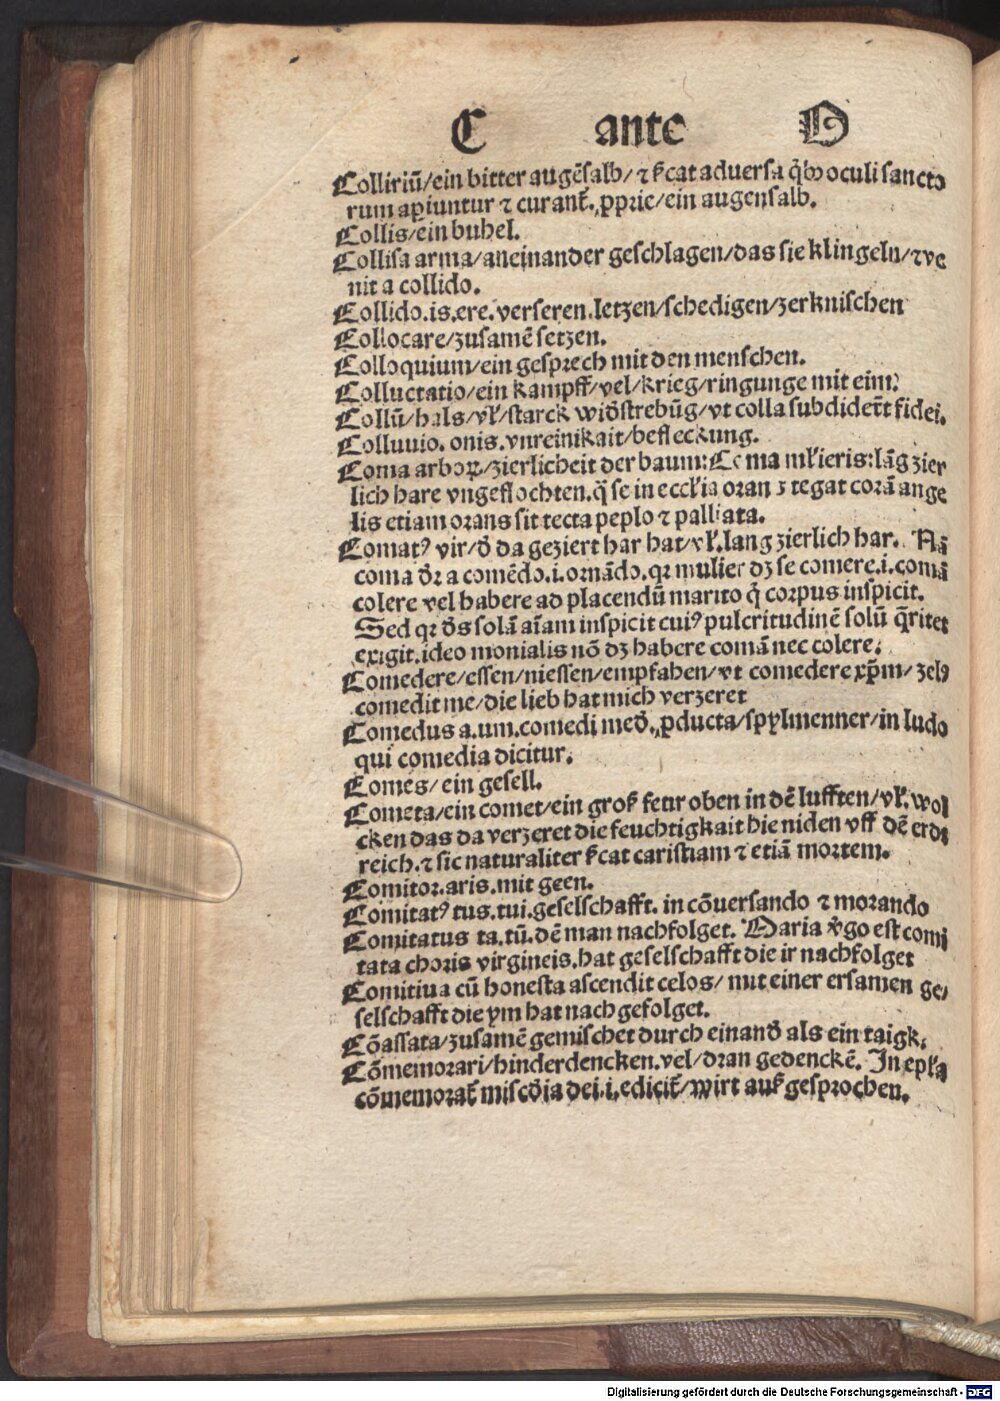 C ante O
Colliriū/ein bitter augēsalb/ ⁊ ſcat aduersa q̄bꝰ oculi sancto
rum aꝑiuntur ⁊ curant̄. ꝓprie/ein augensalb.
Collis/ein buhel.
Collisa arma/aneinander geschlagen/das sie klingeln/⁊ ve
nit a collido.
Collido.is.ere.verseren.letzen/schedigen/zerknischen
Collocare/zusamē setzen.
Colloquium/ein gesprech mit den menschen.
Colluctatio/ein kampff/vel/krieg/ringunge mit eim:
Collū/hals/vl̄/starck widstrebūg/vt colla subdider̄t fidei.
Colluuio. onis. vnreinikait/befleckung.
Coma arboꝝ/zierlicheit der baum: Coma ml̄ieris: lāg zier
lich hare vngeflochten. q̄ se in eccl̄ia oran ꝫ tegat corā ange
lis etiam orans sit tecta peplo ⁊ palliata.
Comatꝰ vir/đ da geziert har hat/vl̄.lang zierlich har. Nā
coma đr a comēdo.i.ornādo.qꝛ mulier dꝫ se comere.i.comā
colere vel habere ad placendū marito q̄ corpus inspicit.
Sed qꝛ đs solā aīam inspicit cuiꝰ pulcritudinē solū q̄rit et
exigit.ideo monialis nō dꝫ habere comā nec colere.
Comedere/essen/niessen/empfahen/vt comedere xp̄m/ zelꝰ
comedit me/die lieb hat mich verzeret
Comedus a.um.comedi međ. ꝓducta/spylmenner/in ludo
qui comedia dicitur.
Comes/ ein gesell.
Cometa/ein comet/ein groß feur oben in dē lufften/vl̄.wol
cken das da verzeret die feuchtigkait hie niden vff dē erdt
reich.⁊ sic naturaliter ſcat caristiam ⁊ etiā mortem.
Comitor.aris.mit geen.
Comitatꝰ tus.tui.geselschafft. in cōuersando ⁊ morando
Comitatus ta.tū.dē man nachfolget. Maria v̄go est comi
tata choris virgineis.hat geselschafft die ir nachfolget
Comitiua cū honesta ascendit celos/ mit einer ersamen ge/
selschafft die ym hat nach gefolget.
Cōassata/zusamē gemischet durch einand als ein taigk.
Cōmemorari/hinderdencken.vel/dran gedenckē. In epl̄a
cōmemorat̄ misc̄dia dei.i.edicit̄/wirt auß gesprochen.
Digitalisierung gefördert durch die Deutsche Forschungsgemeinschaft - DFG